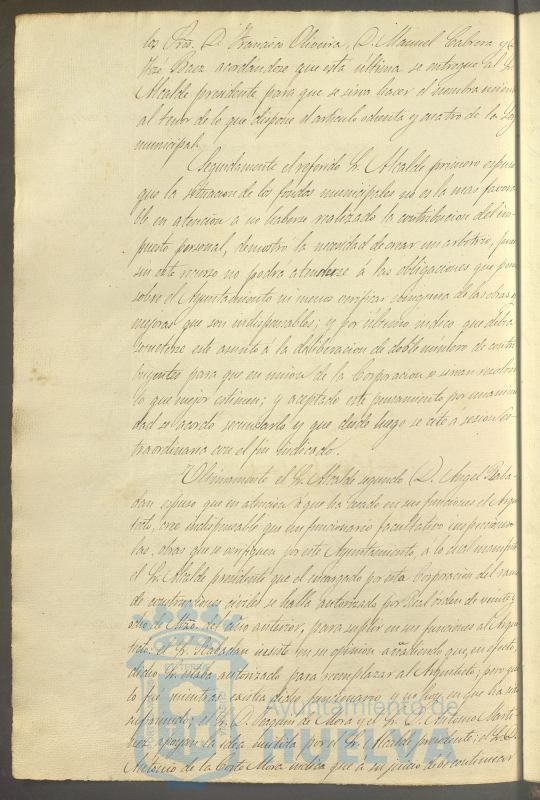 los Sres. D. Francisco Oliveira, D. Manuel Cabrera y D.
José Baez acordándose que esta última se entregue al Sr.
Alcalde presidente para que se sirva hacer el nombramiento
al tenor de lo que dispone el artículo ochenta y cuatro de la Ley
municipal.
Seguidamente el referido Sr. Alcalde primero espuso
que la situacion de los fondos municipales no es la mas favora
ble en atencion a no haberse realizado la contribucion del im-
puesto personal, demostró la necesidad de crear un arbitrio, pues
sin este recurso no podra atenderse á las obligaciones que pesan
sobre el Ayuntamiento ni menos verificar ninguna de las obras y
mejoras que son indispensables; y por último indicó que debía
someterse este asunto á la deliberacion de doble número de contri
buyentes para que en union de la Corporacion se sirvan resolver
lo que mejor estimen; y aceptado este pensamiento por unanimi
dad se acordó secundarlo y que desde luego se cite á sesion Es-
traordinaria con el fin indicado.
Ultimamente el Sr. Alcalde segundo D. Angel Raba
dan espuso que en atencion á que ha cesado en sus funciones el Arqui
tecto, cree indispensable que un funcionario facultativo inspeccione
las obras que se verifiquen por este Ayuntamiento, a lo cual manifestó
el Sr. Alcalde presidente que el encargado por esta Corporacion del ramo
de construcciones civiles se halla autorizado por Real órden de veinte y
ocho de del año anterior, para suplir en sus funciones al Arqui
tecto: el Sr. Rabadan insistió en su opinion añadiendo que, en efecto,
dicho Sr. estaba autorizado para reemplazar al Arquitecto; pero que
lo fué mientras existia dicho funcionario y no hoy en que ha sido
suprimido; el Sr. D. Joaquin de Mora y el Sr. D. Antonio Marti
nez apoyan la idea emitida por el Sr. Alcalde presidente; el Sr. D.
Antonio de la Corte Mora indica que á su juicio debe continuar
Ayuntamiento de
HUELVA